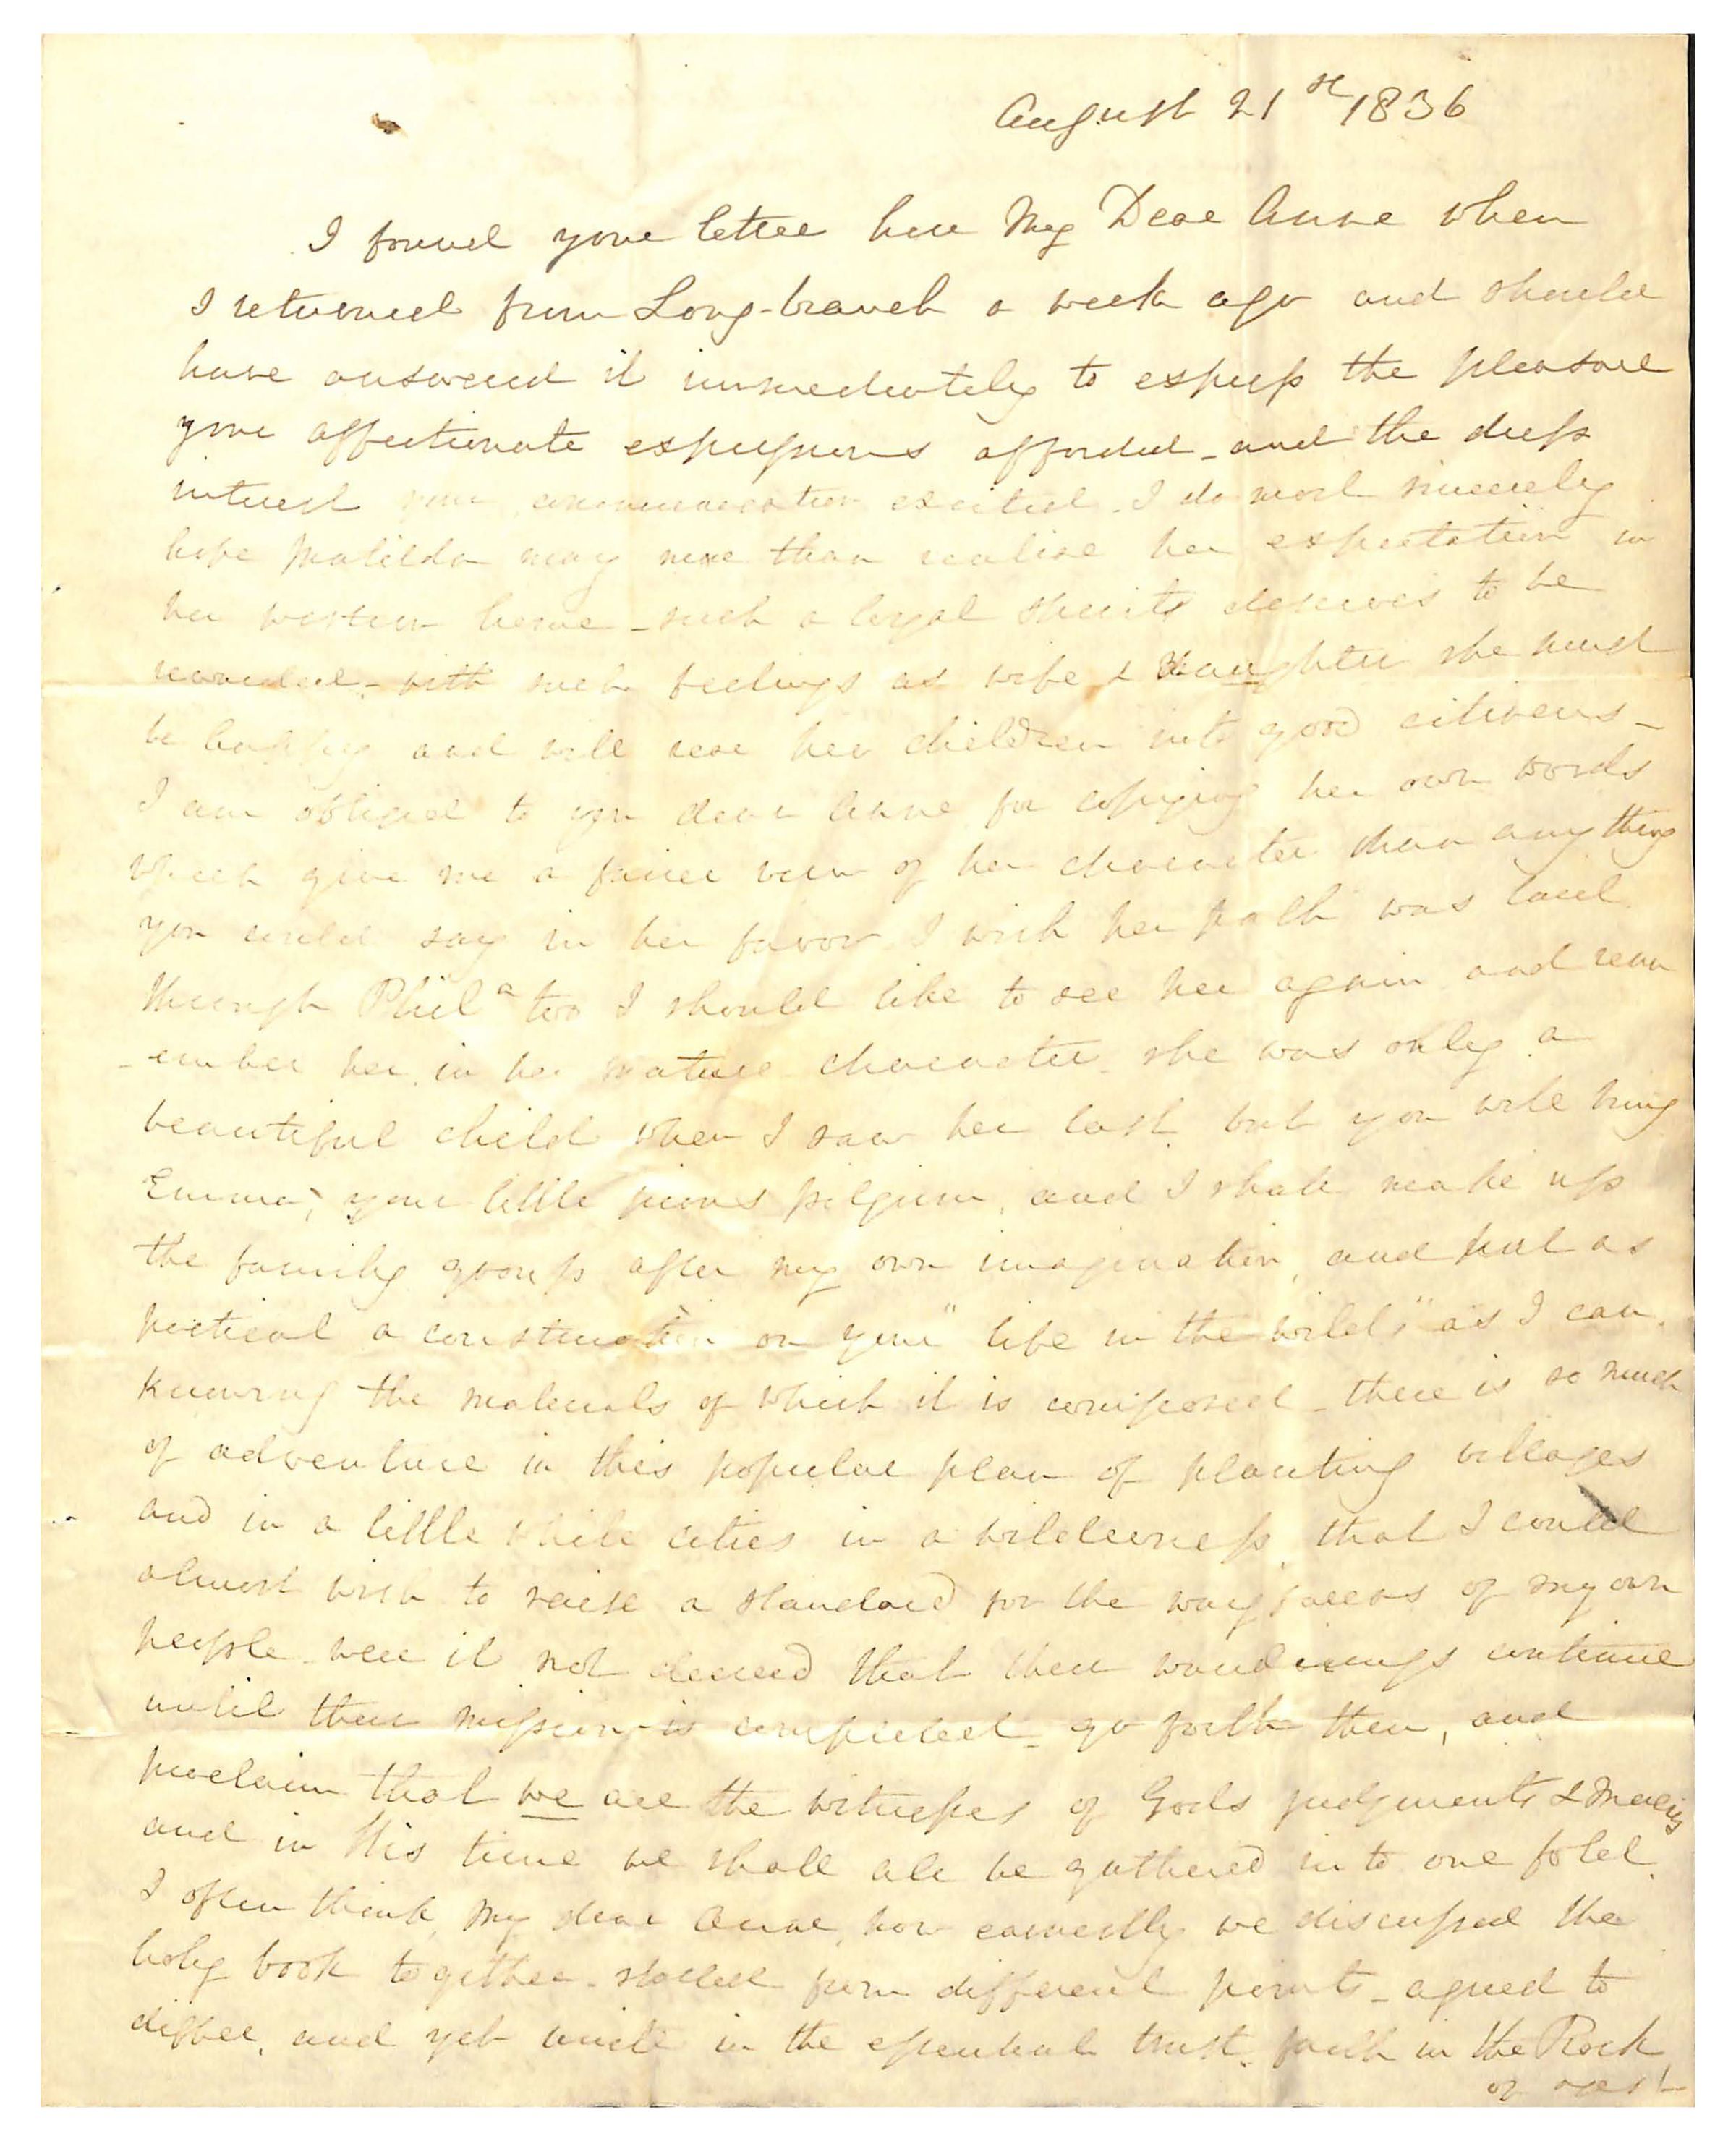 August 21st 1836
I found your letter here My Dear Anne when
I returned from Long-branch a week ago and should
have answered it immediately to express the pleasure
your affectionate expressions afforded - and the deep
interest your communication excited - I do most sincerely
hope Matilda may more than realise her expectation in
her western home - such a loyal spirit deserves to be
rewarded - with such feelings as wife & daughter she must
be happy and will rear her children into good citizens -
I am obliged to you dear Anne for copying her own words
which give me a fairer view of her character than any thing
you could say in her favor I wish her path was laid
through Phila too I should like to see her again and rem
-ember her in her mature character she was only a
beautiful child when I saw her last but you will bring
Emma, your little pious pilgrim, and I shall make up
the family group after my own imagination, and put as
poetical a construction on your "life in the wild" as I can.
knowing the materials of which it is composed - there is so much
of adventure in this popular plan of planting villages
and in a little while cities in a wilderness, that I could
almost wish to raise a standard for the wayfarers of my own
people were it not decreed that their wanderings continue
until their mission is completed - go forth then, and
proclaim that we are the witnesses of Gods judgments & mercy
and in His time we shall all be gathered into one fold.
I often think, my dear Anne, how earnestly we discussed the
holy book together - started from different points - agreed to
differ, and yet unite in the essential trust. faith in the Rock
of ages! -